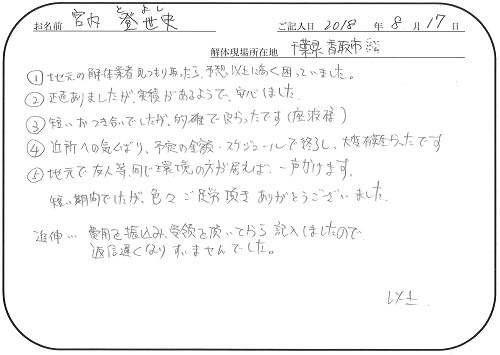 とよし
お名前 宮内 登世史 ご記入日 2018 年 8 月 17 日
解体現場所在地 千葉県香取市
① 地元の解体業者見つもり取ったら、予想以上に高く困っていました。
② 正直ありましたが、実績があるようで、安心しました。
③ 短いおつき合いでしたが、的確で良かったです(座波様)
④ 近所への気くばり、予定の金額・スケジュールで終了し、大変有難かったです
⑤ 地元で友人等、同じ環境の方が居えば、一声かけます。
短い期間でしたが、色々ご足労頂きありがとうございました。
追伸… 費用を振込み、受領を頂いてから記入しましたので
返信遅くなりすいませんでした。
以上